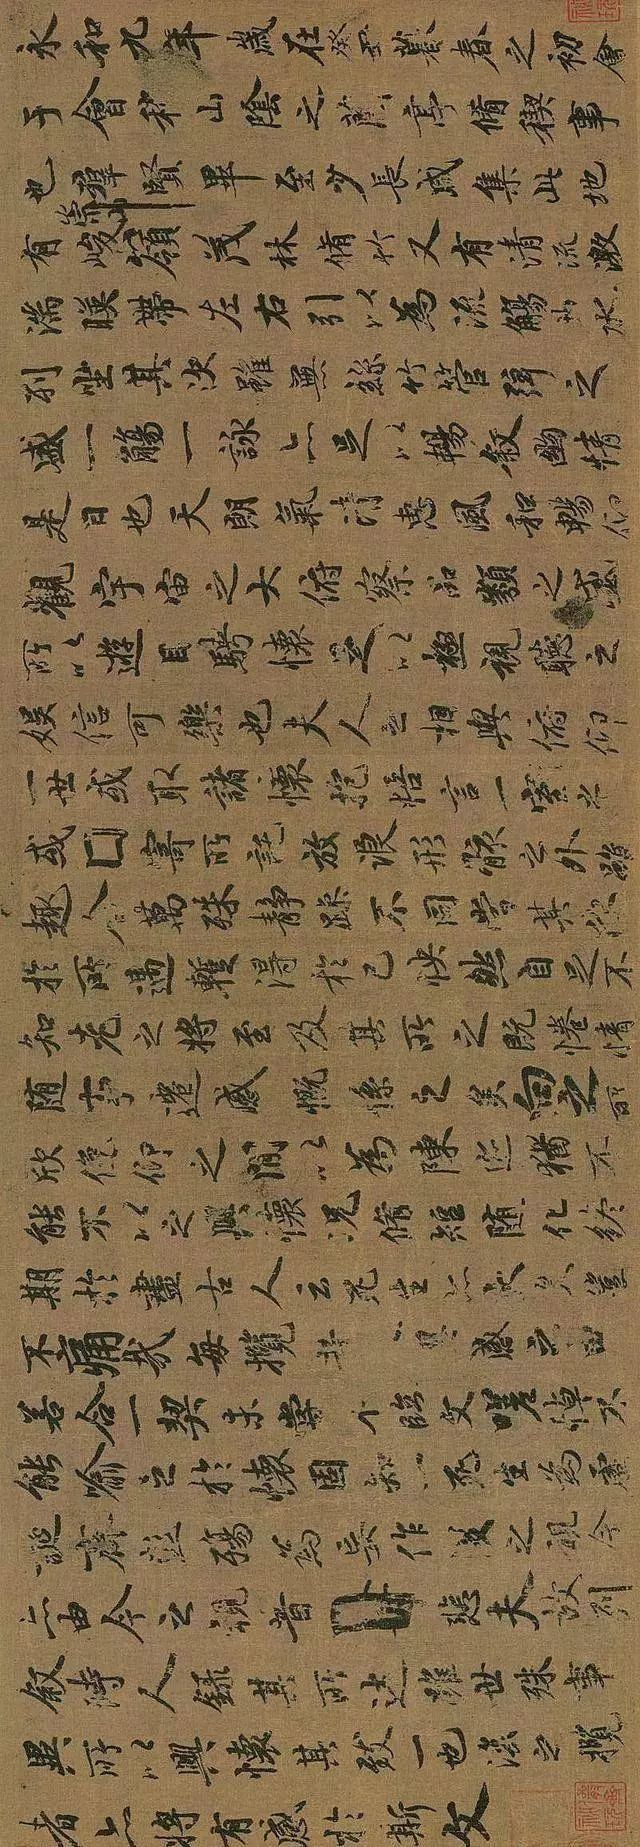 永和九年歲在癸丑暮春之初會
于會稽山陰之蘭亭脩稧事
也羣賢畢至少長咸集此地
有崇山峻領茂林脩竹又有清流激
湍暎帶左右引以為流觴曲水
列坐其次雖無絲竹管弦之
盛一觴一詠亦足以暢敘幽情
是日也天朗氣清惠風和暢仰
觀宇宙之大俯察品類之盛
所以遊目騁懷足以極視聽之
娛信可樂也夫人之相與俯仰
一世或取諸懷抱悟言一室之
或因寄所託放浪形骸之外雖
趣舍萬殊靜躁不同當其欣
於所遇暫得於己怏然自足不
知老之將至及其所之既惓情
隨事遷感慨係之矣向之所
欣俛仰之間以為陳迹猶不
能不以之興懷況脩短隨化終
期於盡古人云死生亦大矣豈
不痛哉每攬昔興感之由
若合一契未嘗不臨文嗟悼不
能喻之於懷固知一死生為虛
誕齊彭殤為妄作後之視今
亦由今之視昔悲夫故列
敘時人錄其所述雖世殊事
異所以興懷其致一也後之攬
者亦將有感於斯文